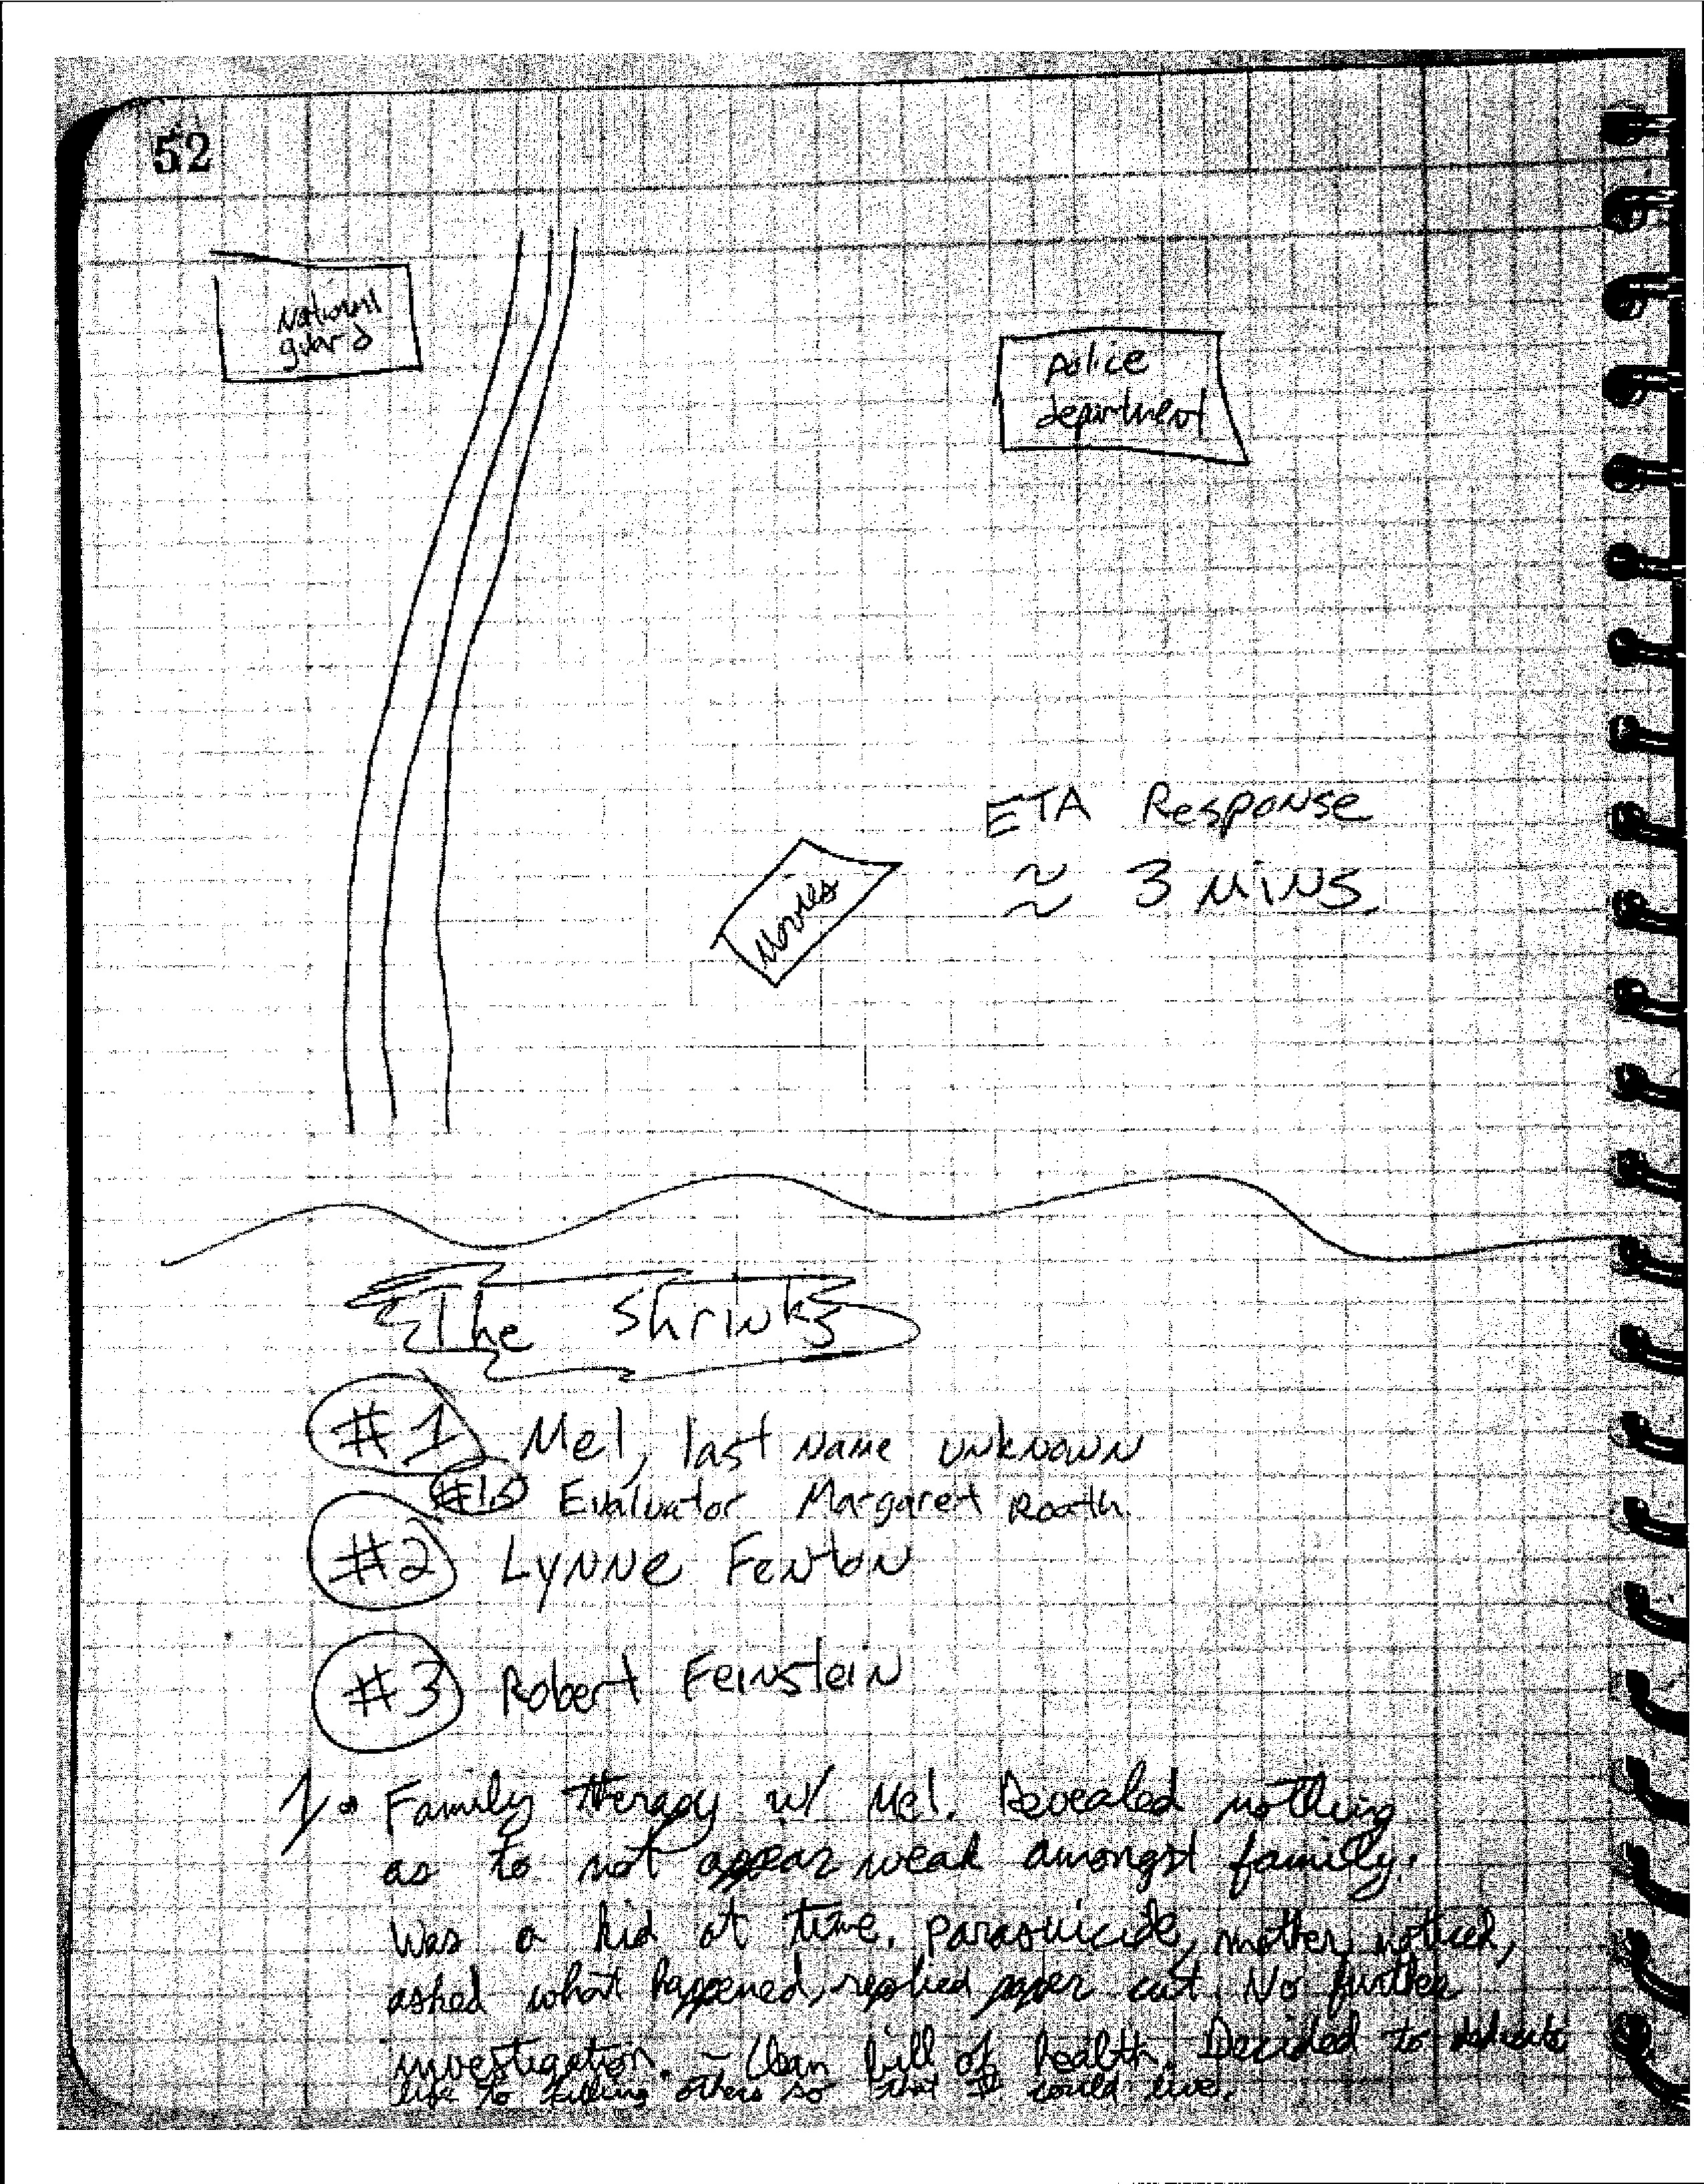 52
National
guard
police
department
ETA Response
≈ 3 mins.
Movies
The Shrinks
#1 Mel, last name unknown
#1.5 Evaluator Margaret Roath
#2 Lynne Fenton
#3 Robert Feinstein
1. Family therapy w/ Mel. Revealed nothing
as to not appear weak amongst family.
Was a kid at time, parasuicide, mother noticed,
asked what happened, replied paper cut. No further
investigation. – Clean bill of health. Decided to dedicate
life to killing others so that I could live.